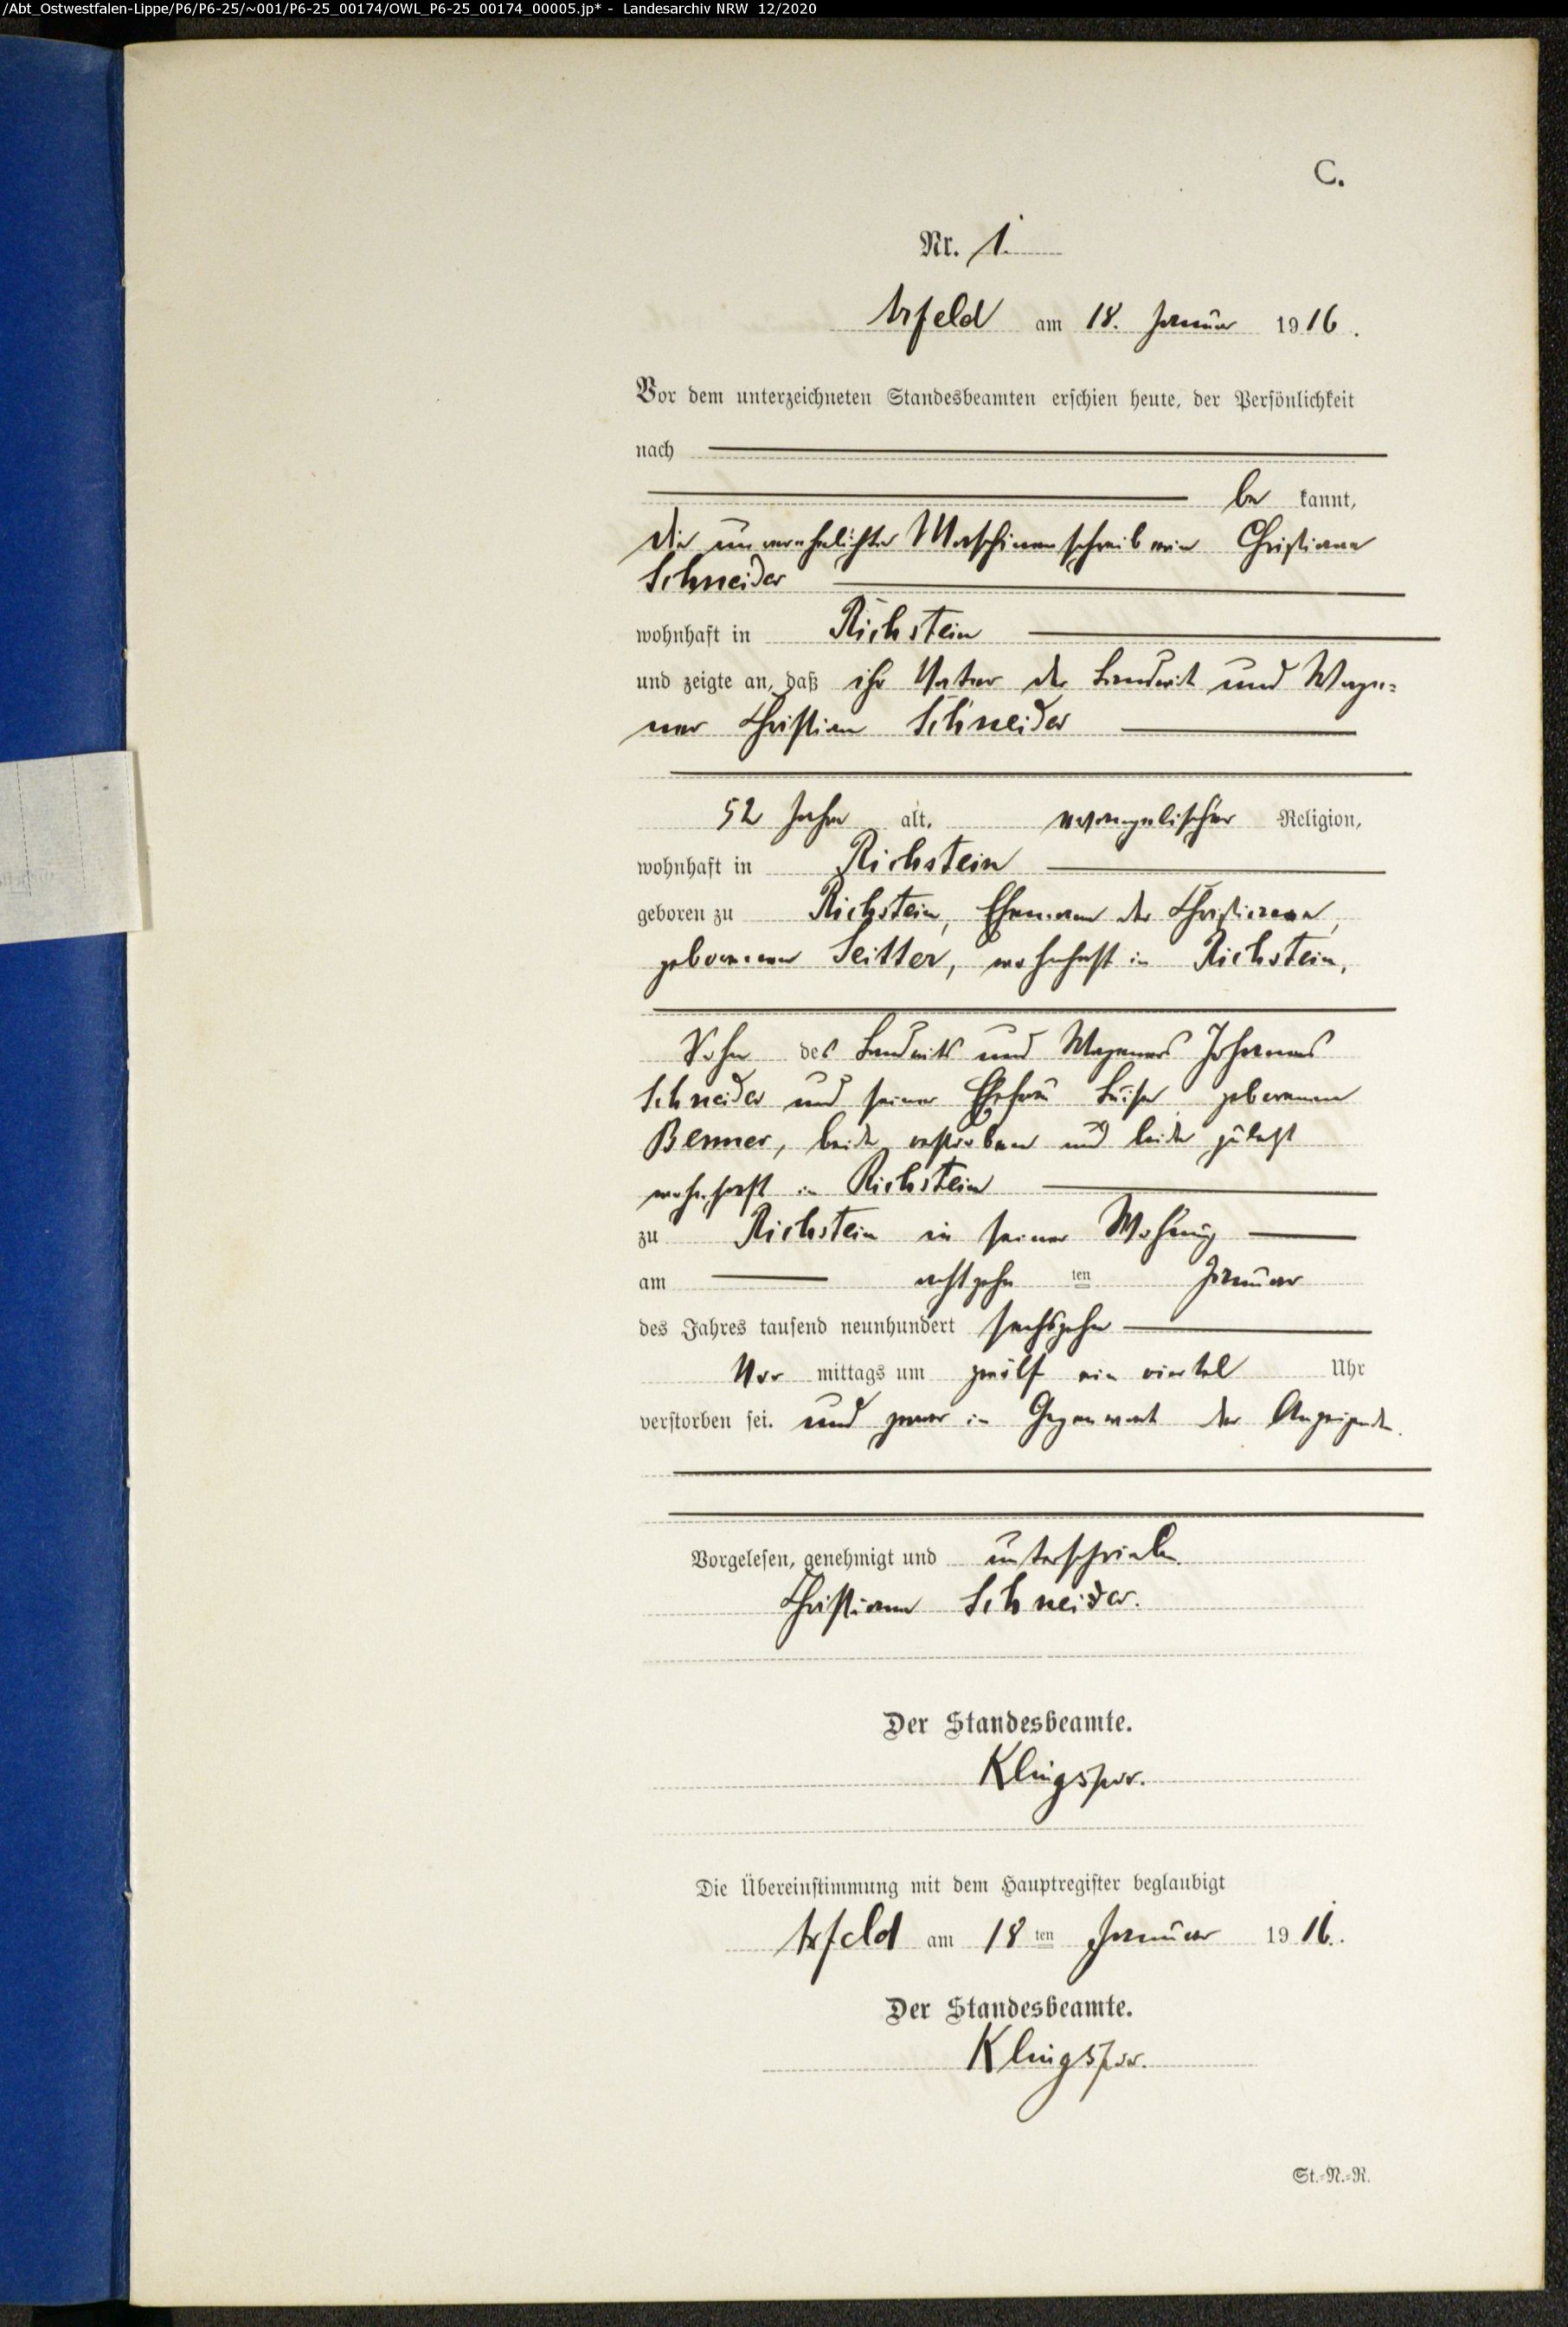 /Abt_Ostwestfalen-Lippe/P6/P6-25/~001/P6-25_00174/OWL_P6-25_00174_00005.jp* - Landesarchiv NRW 12/2020
C.
Nr. 1.
Arfeld am 18. Januar 1916.
Vor dem unterzeichneten Standesbeamten erschien heute, der Persönlichkeit
nach
be kannt,
die unverehelichte Maschinenschreiberin Christiane
Schneider
wohnhaft in Richstein
und zeigte an, daß ihr Vater der Landwirt und Wage-
ner Christian Schneider
52 Jahre alt, evangelischer Religion,
wohnhaft in Richstein
geboren zu Richstein, Ehemann der Christiane,
geborenen Seitter, wohnhaft in Richstein,
Sohn des Landwirts und Wageners Johannes
Schneider und seiner Ehefrau Luise geborenen
Benner, beide verstorben und beide zuletzt
wohnhaft in Richstein
zu Richstein in seiner Wohnung
am achtzehn ten Januar
des Jahres tausend neunhundert sechszehn
Vor mittags um zwölf ein viertel Uhr
verstorben sei. und zwar in Gegenwart der Anzeigende.
Vorgelesen, genehmigt und unterschrieben.
Christiane Schneider.
Der Standesbeamte.
Klingspor.
Die Übereinstimmung mit dem Hauptregister beglaubigt
Arfeld am 18 ten Januar 1916.
Der Standesbeamte.
Klingspor.
St.-N.-R.